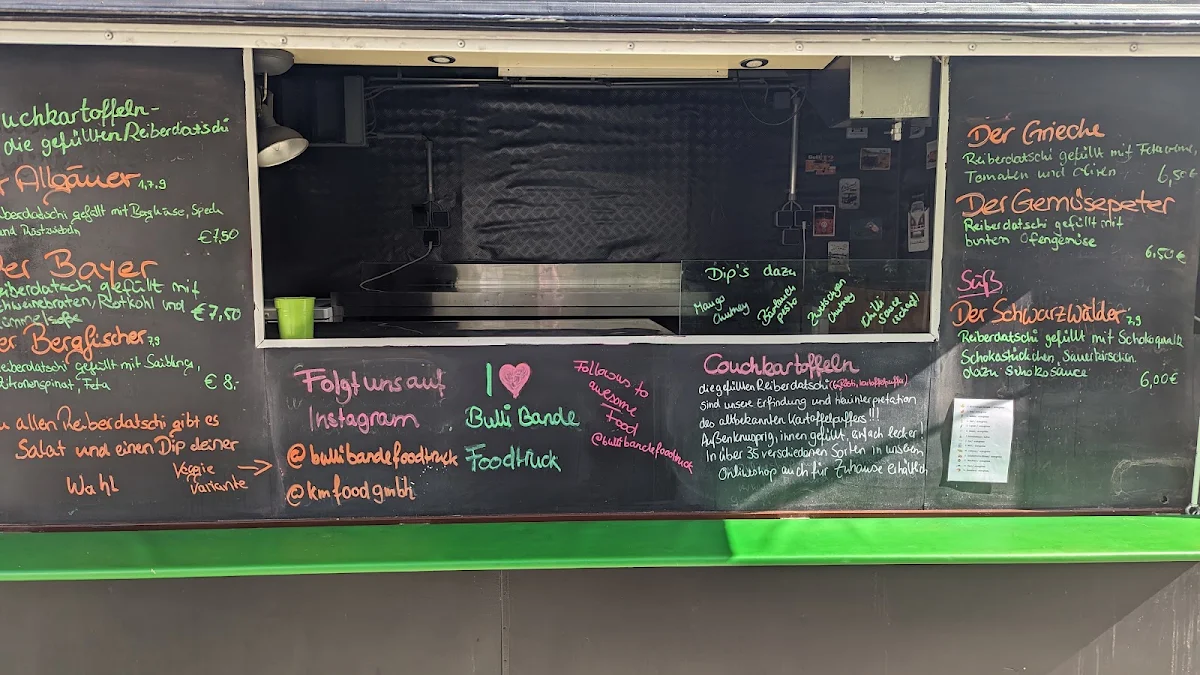 uchkartoffeln-
die gefüllten Reiberdatschi
r Allgäuer 1,7,9
iberdatschi gefüllt mit Bergkäse, Speck
und Röstzwiebeln
€7,50
Der Bayer
eiberdatschi gefüllt mit
chweinebraten, Rotkohl und €7,50
ümmelsoße
er Bergfischer 7,9
eiberdatschi gefüllt mit Saibling,
Zitronenspinat, Feta
€ 8.-
u allen Reiberdatschi gibt es
Salat und einen Dip deiner
Wahl
Veggie
Variante
Dip's dazu
Mango
Chutney
Bärlauch
pesto
Zwetschgen
chutney
Chilli
sauce
Folgt uns auf
Instagram
@bullibandefoodtruck
@kmfoodgmbh
I
Bulli Bande
Foodtruck
Follow us to
awesome
food
@bullibandefoodtruck
Couchkartoffeln
die gefüllten Reiberdatschi (Kartoffelpuffer)
sind unsere Erfindung und Neuinterpretation
des altbekannten Kartoffelpuffers!!!
Außen knusprig, innen gefüllt, einfach lecker!
In über 35 verschiedenen Sorten in unserem
Onlineshop auch für Zuhause erhältlich
Der Grieche
Reiberdatschi gefüllt mit Fetacreme,
Tomaten und Oliven
6,50€
Der Gemüsepeter
Reiberdatschi gefüllt mit
buntem Ofengemüse
6,50€
Süß
Der Schwarzwälder 7,9
Reiberdatschi gefüllt mit Schokoquark
Schokostückchen, Sauerkirschen
dazu Schokosauce
6,00€